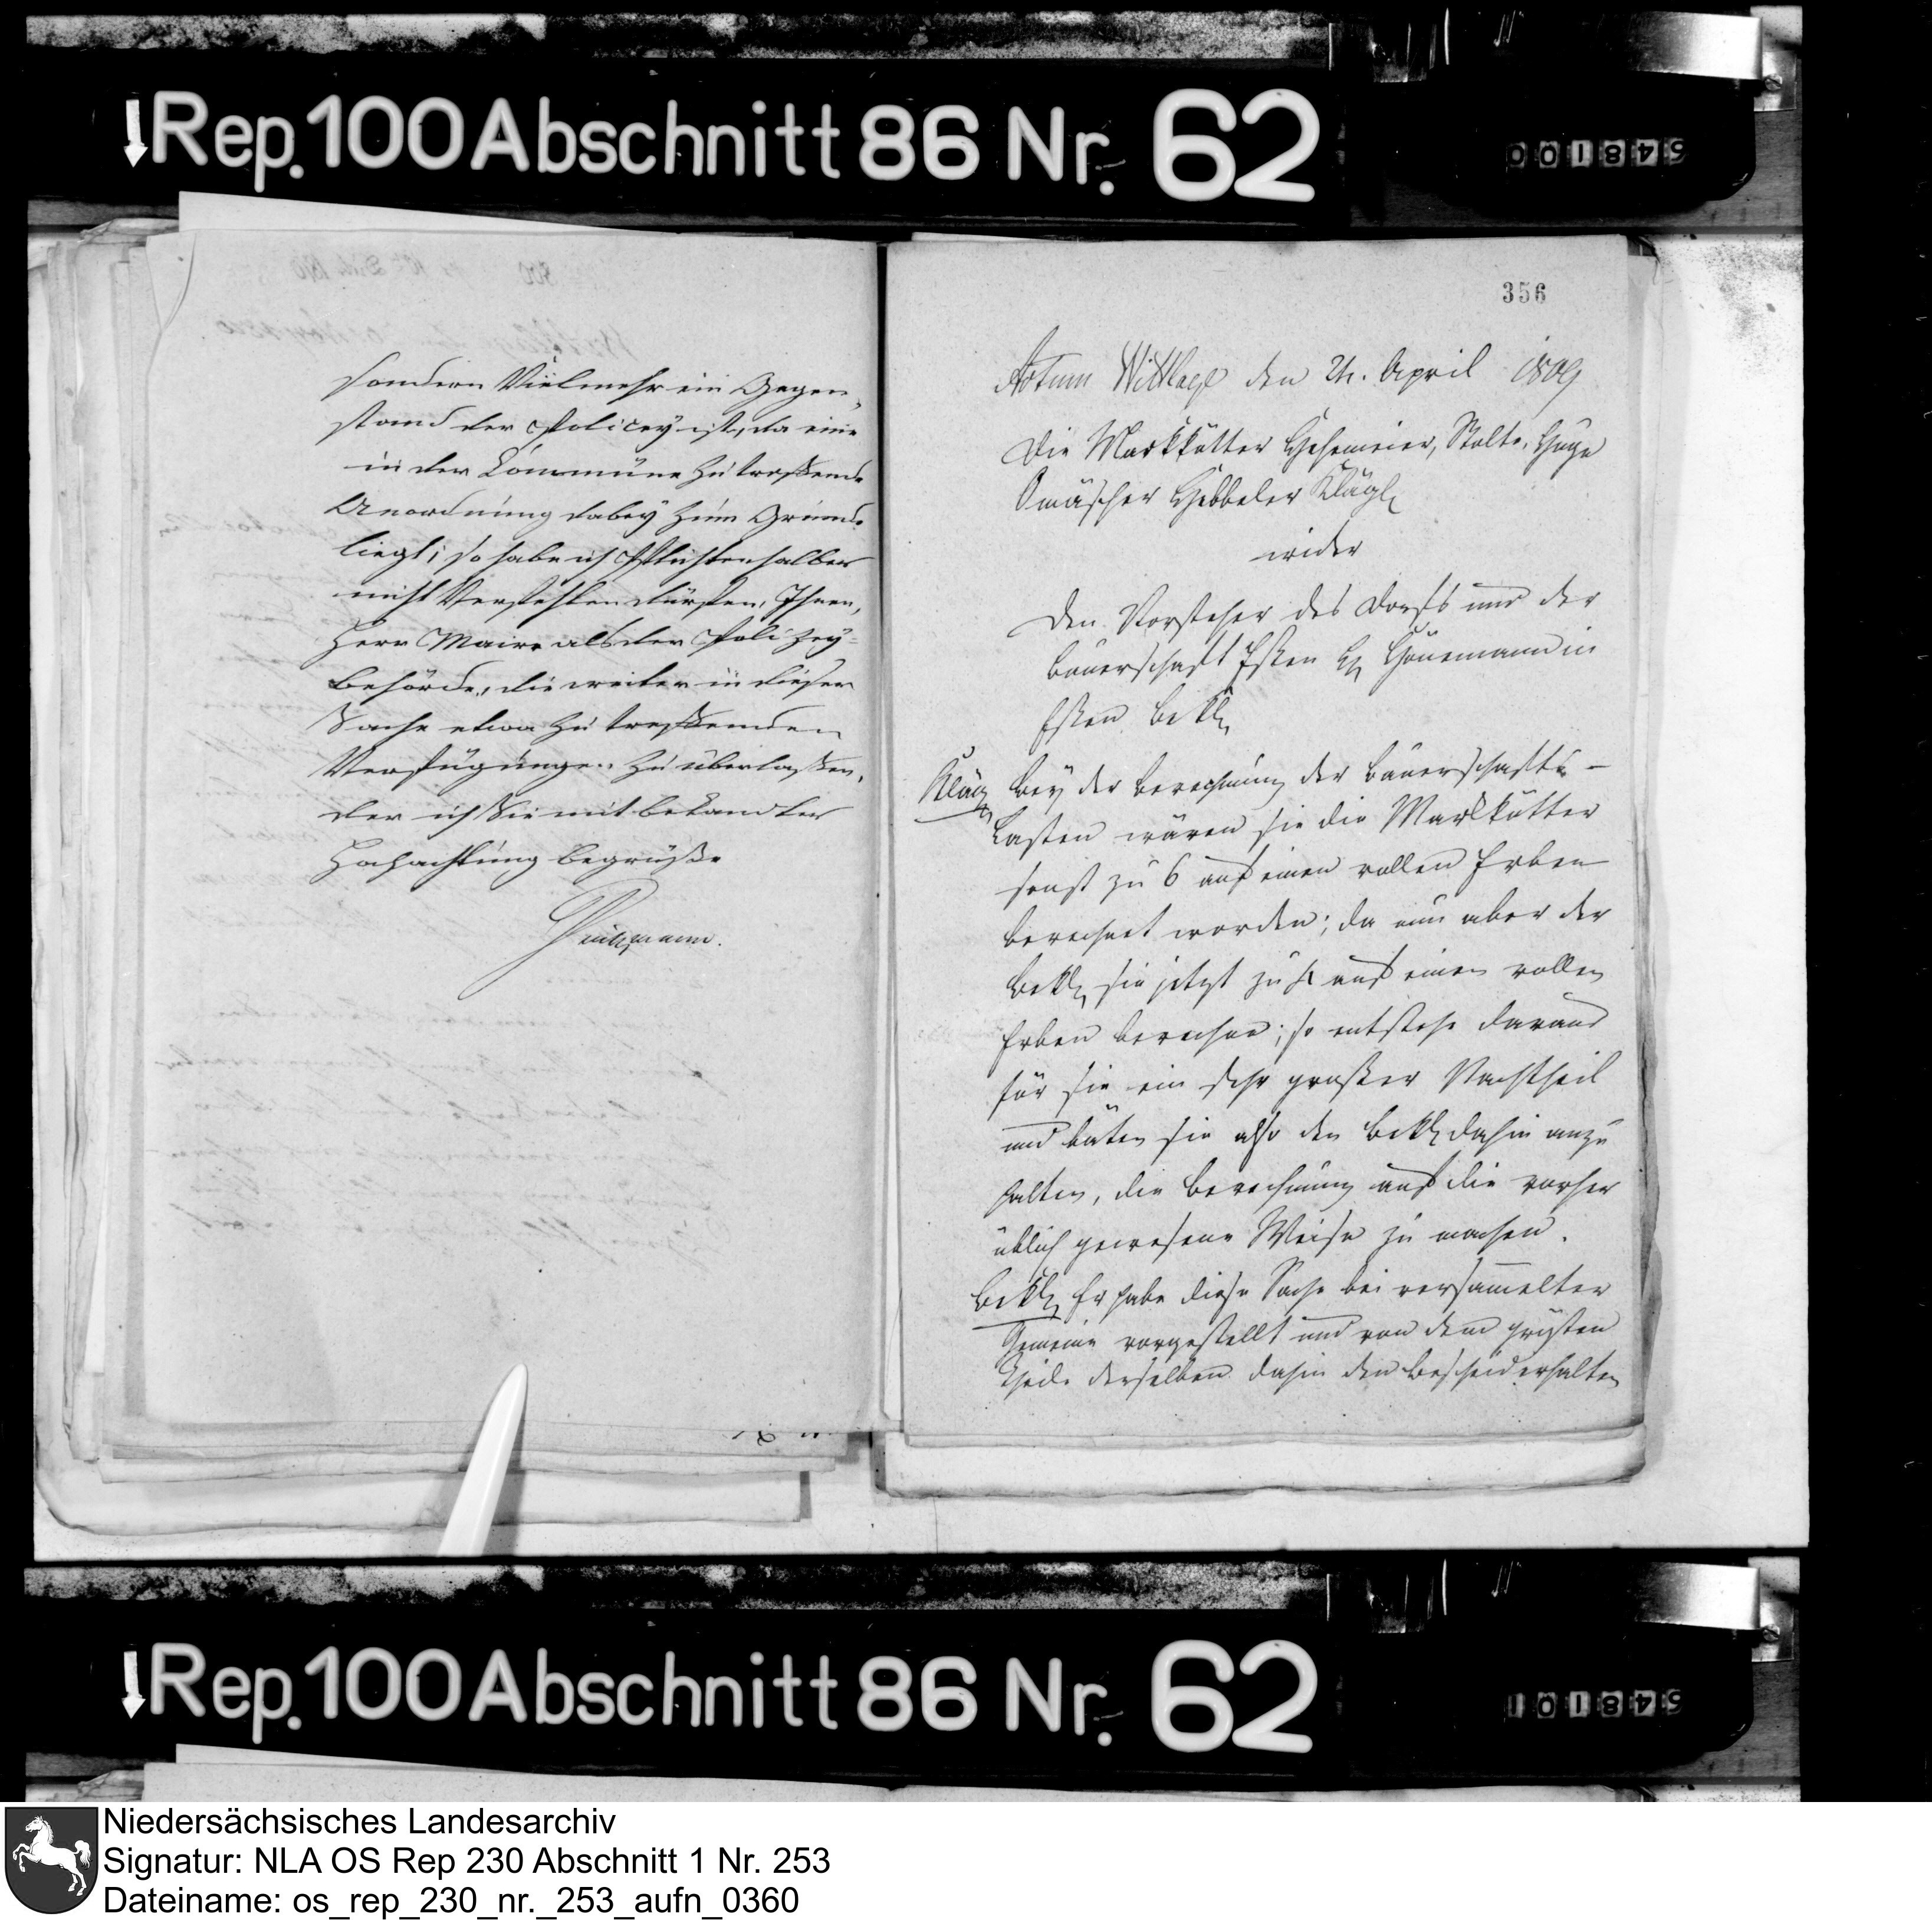 Rep. 100 Abschnitt 86 Nr. 62
001845
sondern Vielmehr ein Gegen-
stand der Policey ist, da eine
in der Commüne zu treffende
Anordnung dabey zum Grunde
liegt; so habe ich Pflichtenhalber
nicht Verfehlen dürfen, Ihnen,
Herr Maire als der Polizey-
Behörde, die weiter in dieser
Sache etwa zu treffenden
Verfügungen zu überlassen,
der ich Sie mit bekandter
Hochachtung begrüße
356
Actum Wittlage den 24. April 1809
Die Markkötter Gehemeier, Nolte, Huge
Hebbeler Kläger
wider
den Vorsteher des Dorfs und der
Bauerschaft Essen H. Hönemann in
Essen Bekl.
Kläger Bey der Berechnung der Bauerschafts-
Lasten wären sie die Markkötter
sonst zu 6 auf einen vollen Erben
berechnet worden; da nun aber der
Bekl. sie jetzt zu 4 auf einen vollen
Erben berechne; so entstehe daraus
für sie ein sehr großer Nachtheil
und bäten sie also den Bekl. dahin anzu
halten, die Berechnung auf die vorher
üblich gewesene Weise zu machen.
Bekl. Er habe diese Sache bei versammelter
Gemeine vorgestellt und von dem grösten
Theile derselben dahin den Bescheid erhalten
Rep. 100 Abschnitt 86 Nr. 62
101845
Niedersächsisches Landesarchiv
Signatur: NLA OS Rep 230 Abschnitt 1 Nr. 253
Dateiname: os_rep_230_nr._253_aufn_0360